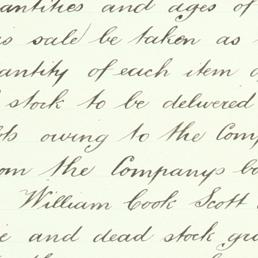 quantities and ages of
is sale be taken as
quantity of each item
stock to be delivered
owing to the Comp
om the Companys bo
William Cook Scott
and dead stock gr